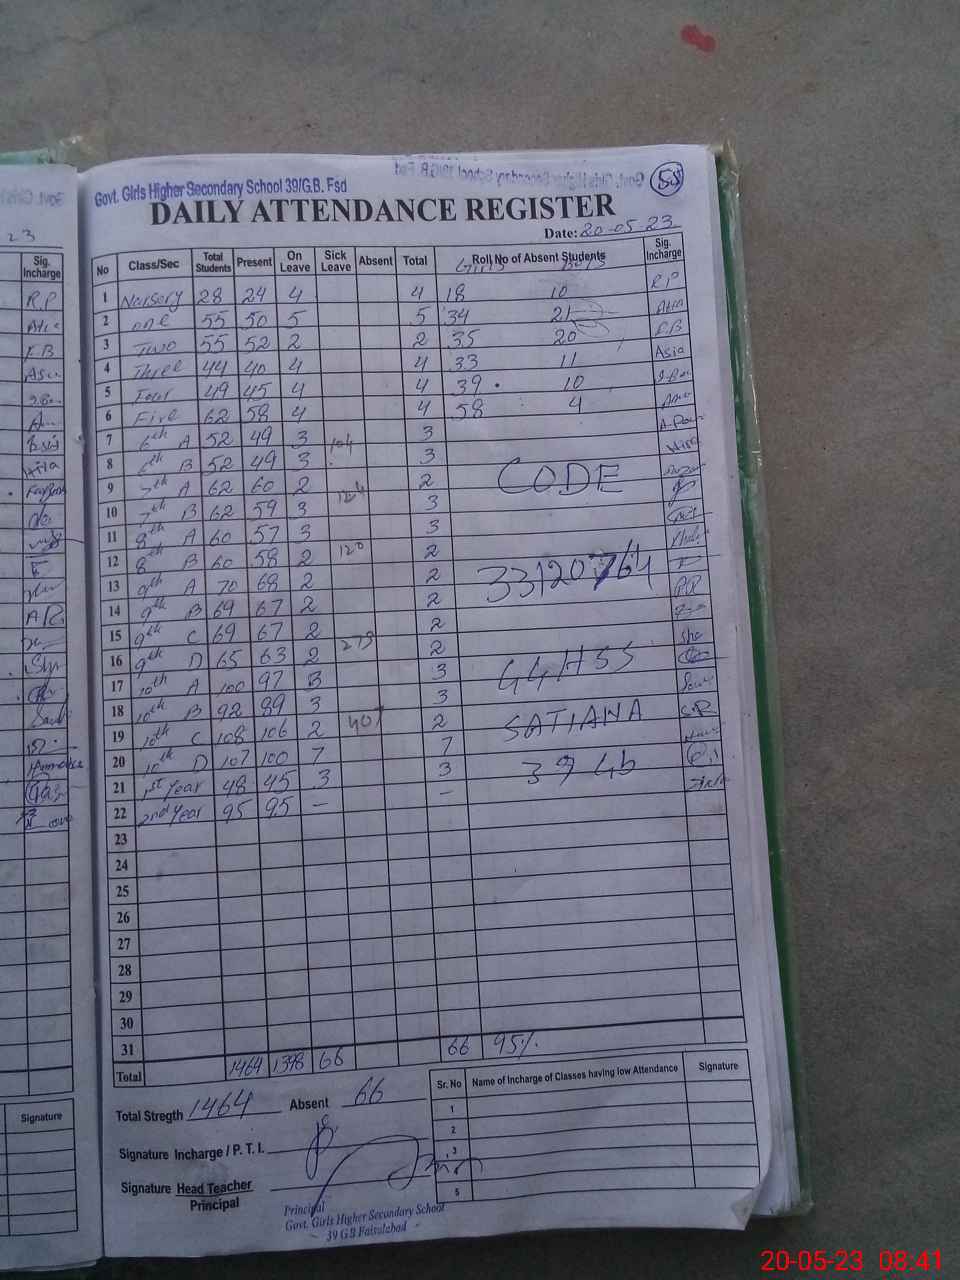 Govt. Girls Higher Secondary School 39/G.B. Fsd
55
DAILY ATTENDANCE REGISTER
Date: 20-05-23
No Class/Sec Total Students Present On Leave Sick Leave Absent Total Roll No of Absent Students Sig. Incharge
Girls Boys
1 Nursery 28 24 4 4 18 10 RP
2 One 55 50 5 5 34 21
3 Two 55 52 2 2 35 20
4 Three 44 40 4 4 33 11 Asia
5 Four 49 45 4 4 39 10
6 Five 62 58 4 4 58 4
7 6th A 52 49 3 104 3
8 6th B 52 49 3 3
9 7th A 62 60 2 124 2
CODE
10 7th B 62 59 3 3
11 8th A 60 57 3 3
12 8th B 60 58 2 120 2
13 9th A 70 68 2 2
33120764
14 9th B 69 67 2 2
15 9th C 69 67 2 273 2
16 9th D 65 63 2 2
17 10th A 100 97 3 3
GGHSS
18 10th B 92 89 3 3
19 10th C 108 106 2 407 2
SATIANA
20 10th D 107 100 7 7
21 1st Year 48 45 3 3
39 Gb
22 2nd Year 95 95 – –
23
24
25
26
27
28
29
30
31 66 95%
Total 1464 1398 66
Total Stregth 1464 Absent 66
Signature Incharge / P. T. I.
Signature Head Teacher
Principal
Sr. No Name of Incharge of Classes having low Attendance Signature
1
2
3
5
Principal
Govt. Girls Higher Secondary School
39 GB Faisalabad
23
Sig. Incharge
R.P
Signature
20-05-23 08:41